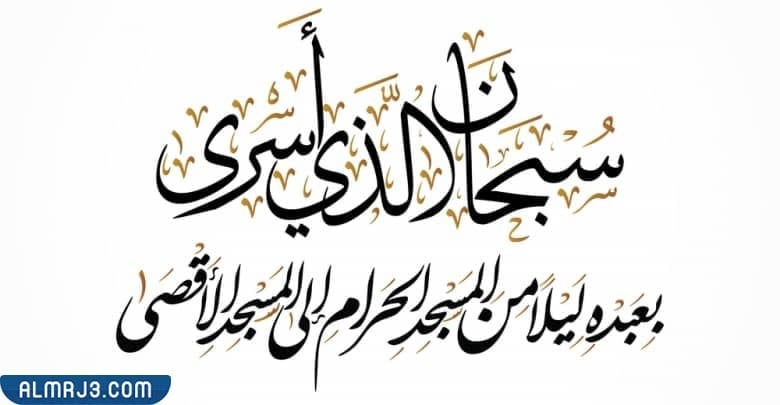 سُبْحَانَ الَّذِي أَسْرَى
بِعَبْدِهِ لَيْلًا مِنَ الْمَسْجِدِ الْحَرَامِ إِلَى الْمَسْجِدِ الْأَقْصَى
ALMRJ3.COM